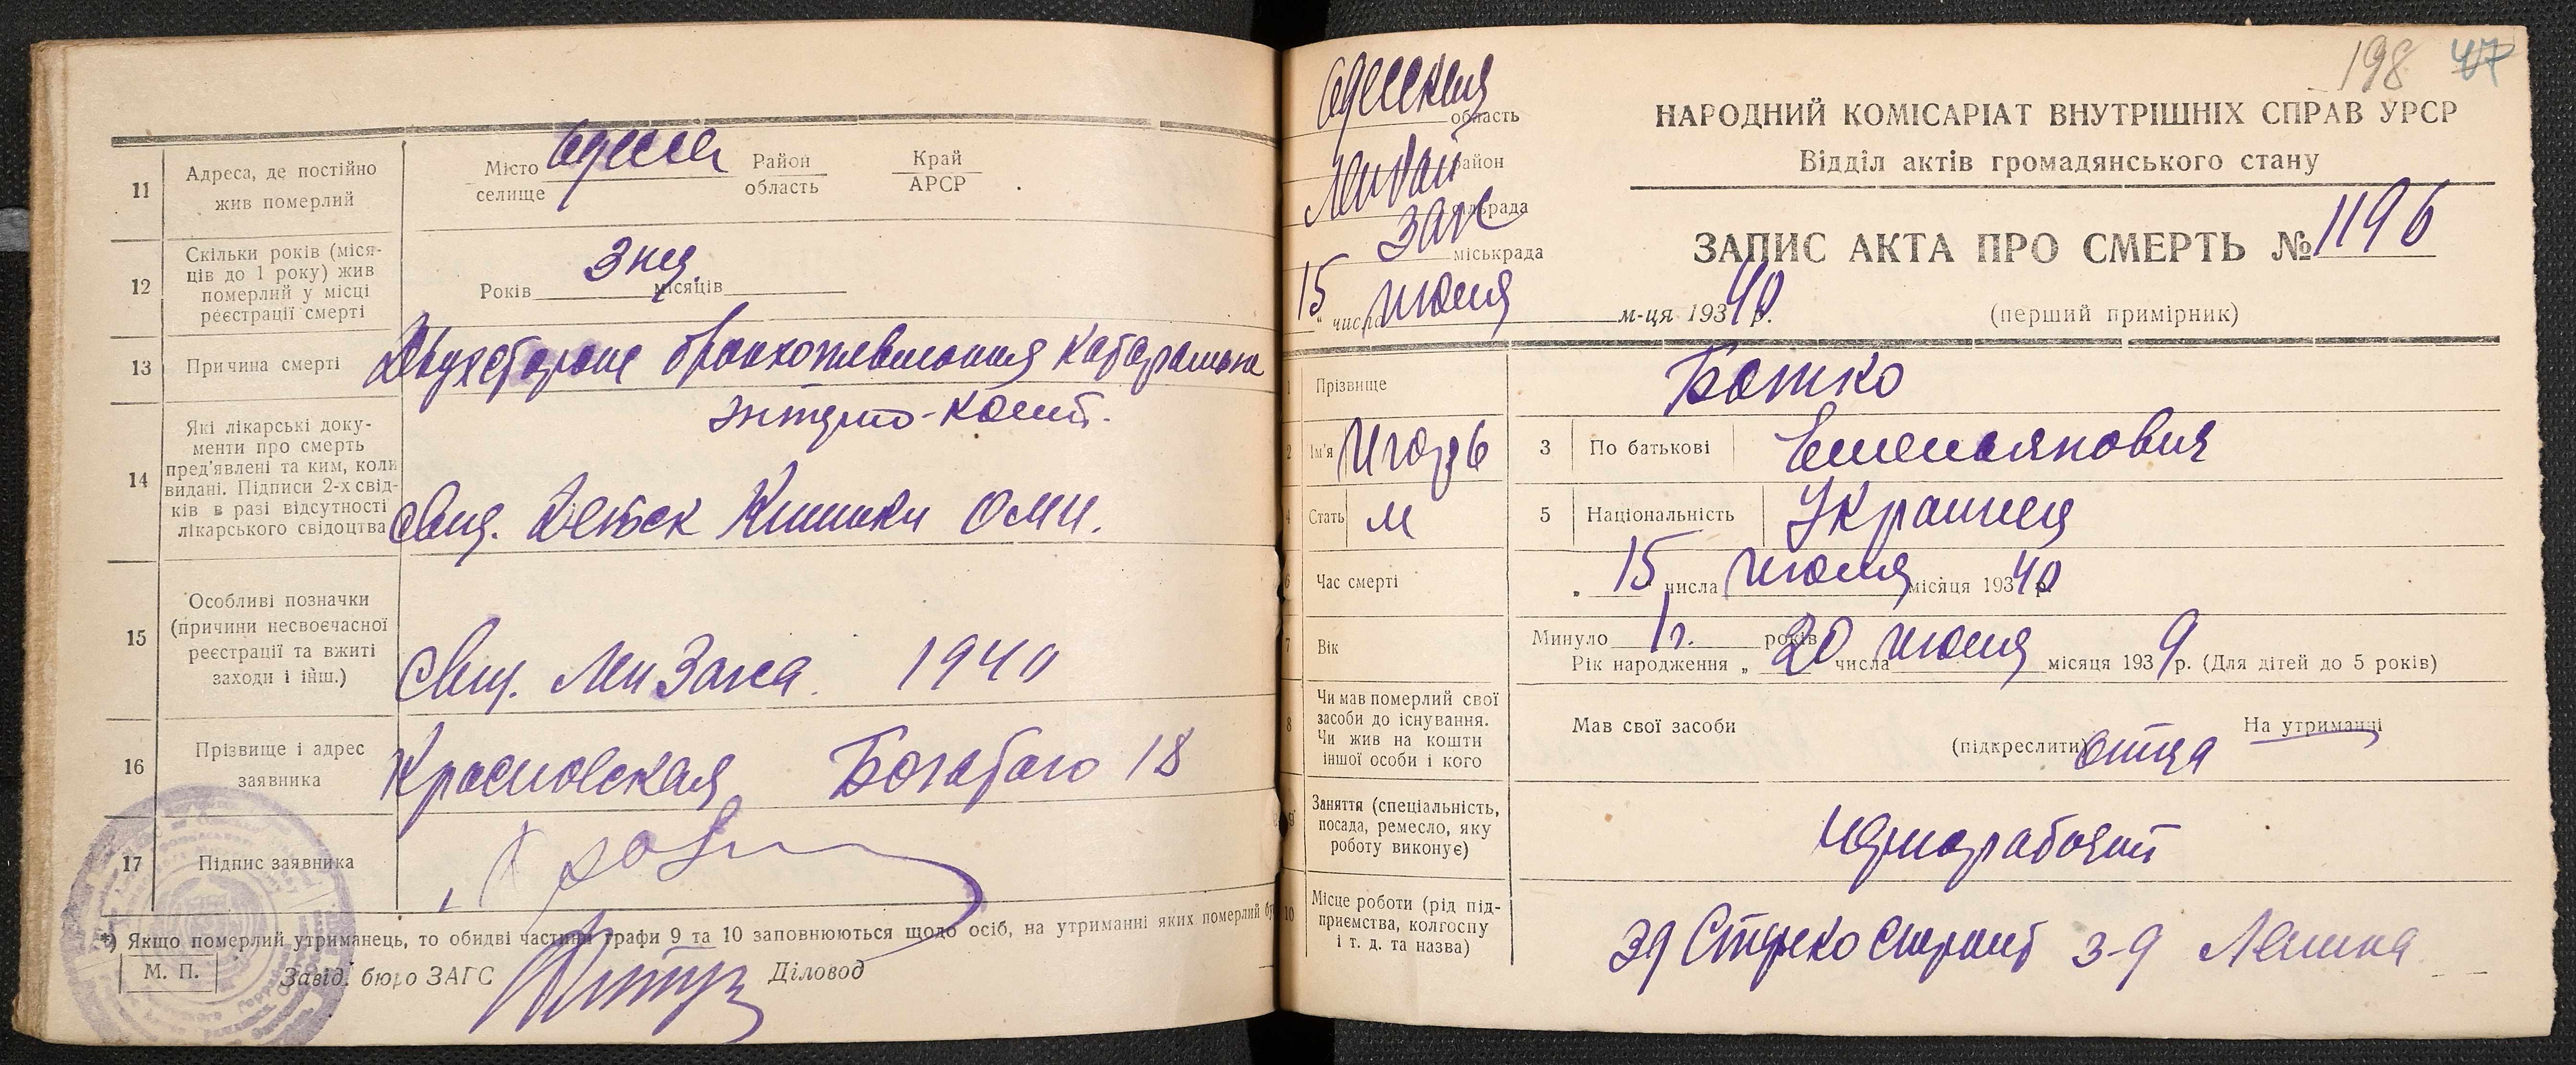 11
Адреса, де постійно
жив померлий
Місто Одесса Район Край
селище область АРСР
12
Скільки років (міся-
ців до 1 року) жив
померлий у місці
реєстрації смерті
Років 3 нед. місяців
13
Причина смерті
Двухсторонн бронхопневмония катаральн
энтеро-колит.
14
Які лікарські доку-
менти про смерть
пред'явлені та ким, коли
видані. Підписи 2-х свід-
ків в разі відсутності
лікарського свідоцтва
Свид. Детск Клиники ОМИ.
15
Особливі позначки
(причини несвоєчасної
реєстрації та вжиті
заходи і інш.)
Лен Загса 1940
16
Прізвище і адрес
заявника
Красновская Богатого 18
17
Підпис заявника
*) Якщо померлий утриманець, то обидві частини графи 9 та 10 заповнюються щодо осіб, на утриманні яких померлий бу
М. П.
Завід. бюро ЗАГС Діловод
198 47
Одесская область
Лен рай район
сільрада
міськрада
15 числа июля м-ця 19340 р.
НАРОДНИЙ КОМІСАРІАТ ВНУТРІШНІХ СПРАВ УРСР
Відділ актів громадянського стану
ЗАПИС АКТА ПРО СМЕРТЬ № 1196
(перший примірник)
1 Прізвище Ботко
2 Ім'я Игорь 3 По батькові Емельянович
4 Стать М 5 Національність Украинец
6 Час смерті „ 15 числа июля місяця 19340 р.
7 Вік
Минуло 1 г. років
Рік народження „ 20 числа июля місяця 1939 р. (Для дітей до 5 років)
8
Чи мав померлий свої
засоби до існування.
Чи жив на кошти
іншої особи і кого
Мав свої засоби На утриманні
(підкреслити) отца
9
Заняття (спеціальність,
посада, ремесло, яку
роботу виконує)
чернорабочий
10
Місце роботи (рід під-
приємства, колгоспу
і т. д. та назва)
3-д Ленина